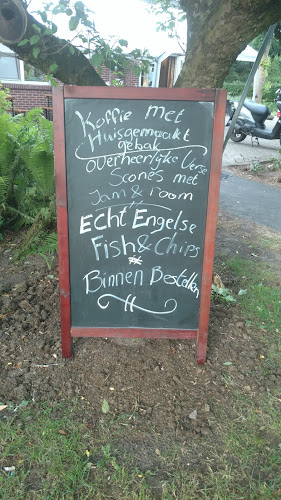 Koffie met
Huisgemaakt
gebak
overheerlijke Verse
Scones met
Jam & room
Echt Engelse
Fish & Chips
Binnen Bestellen